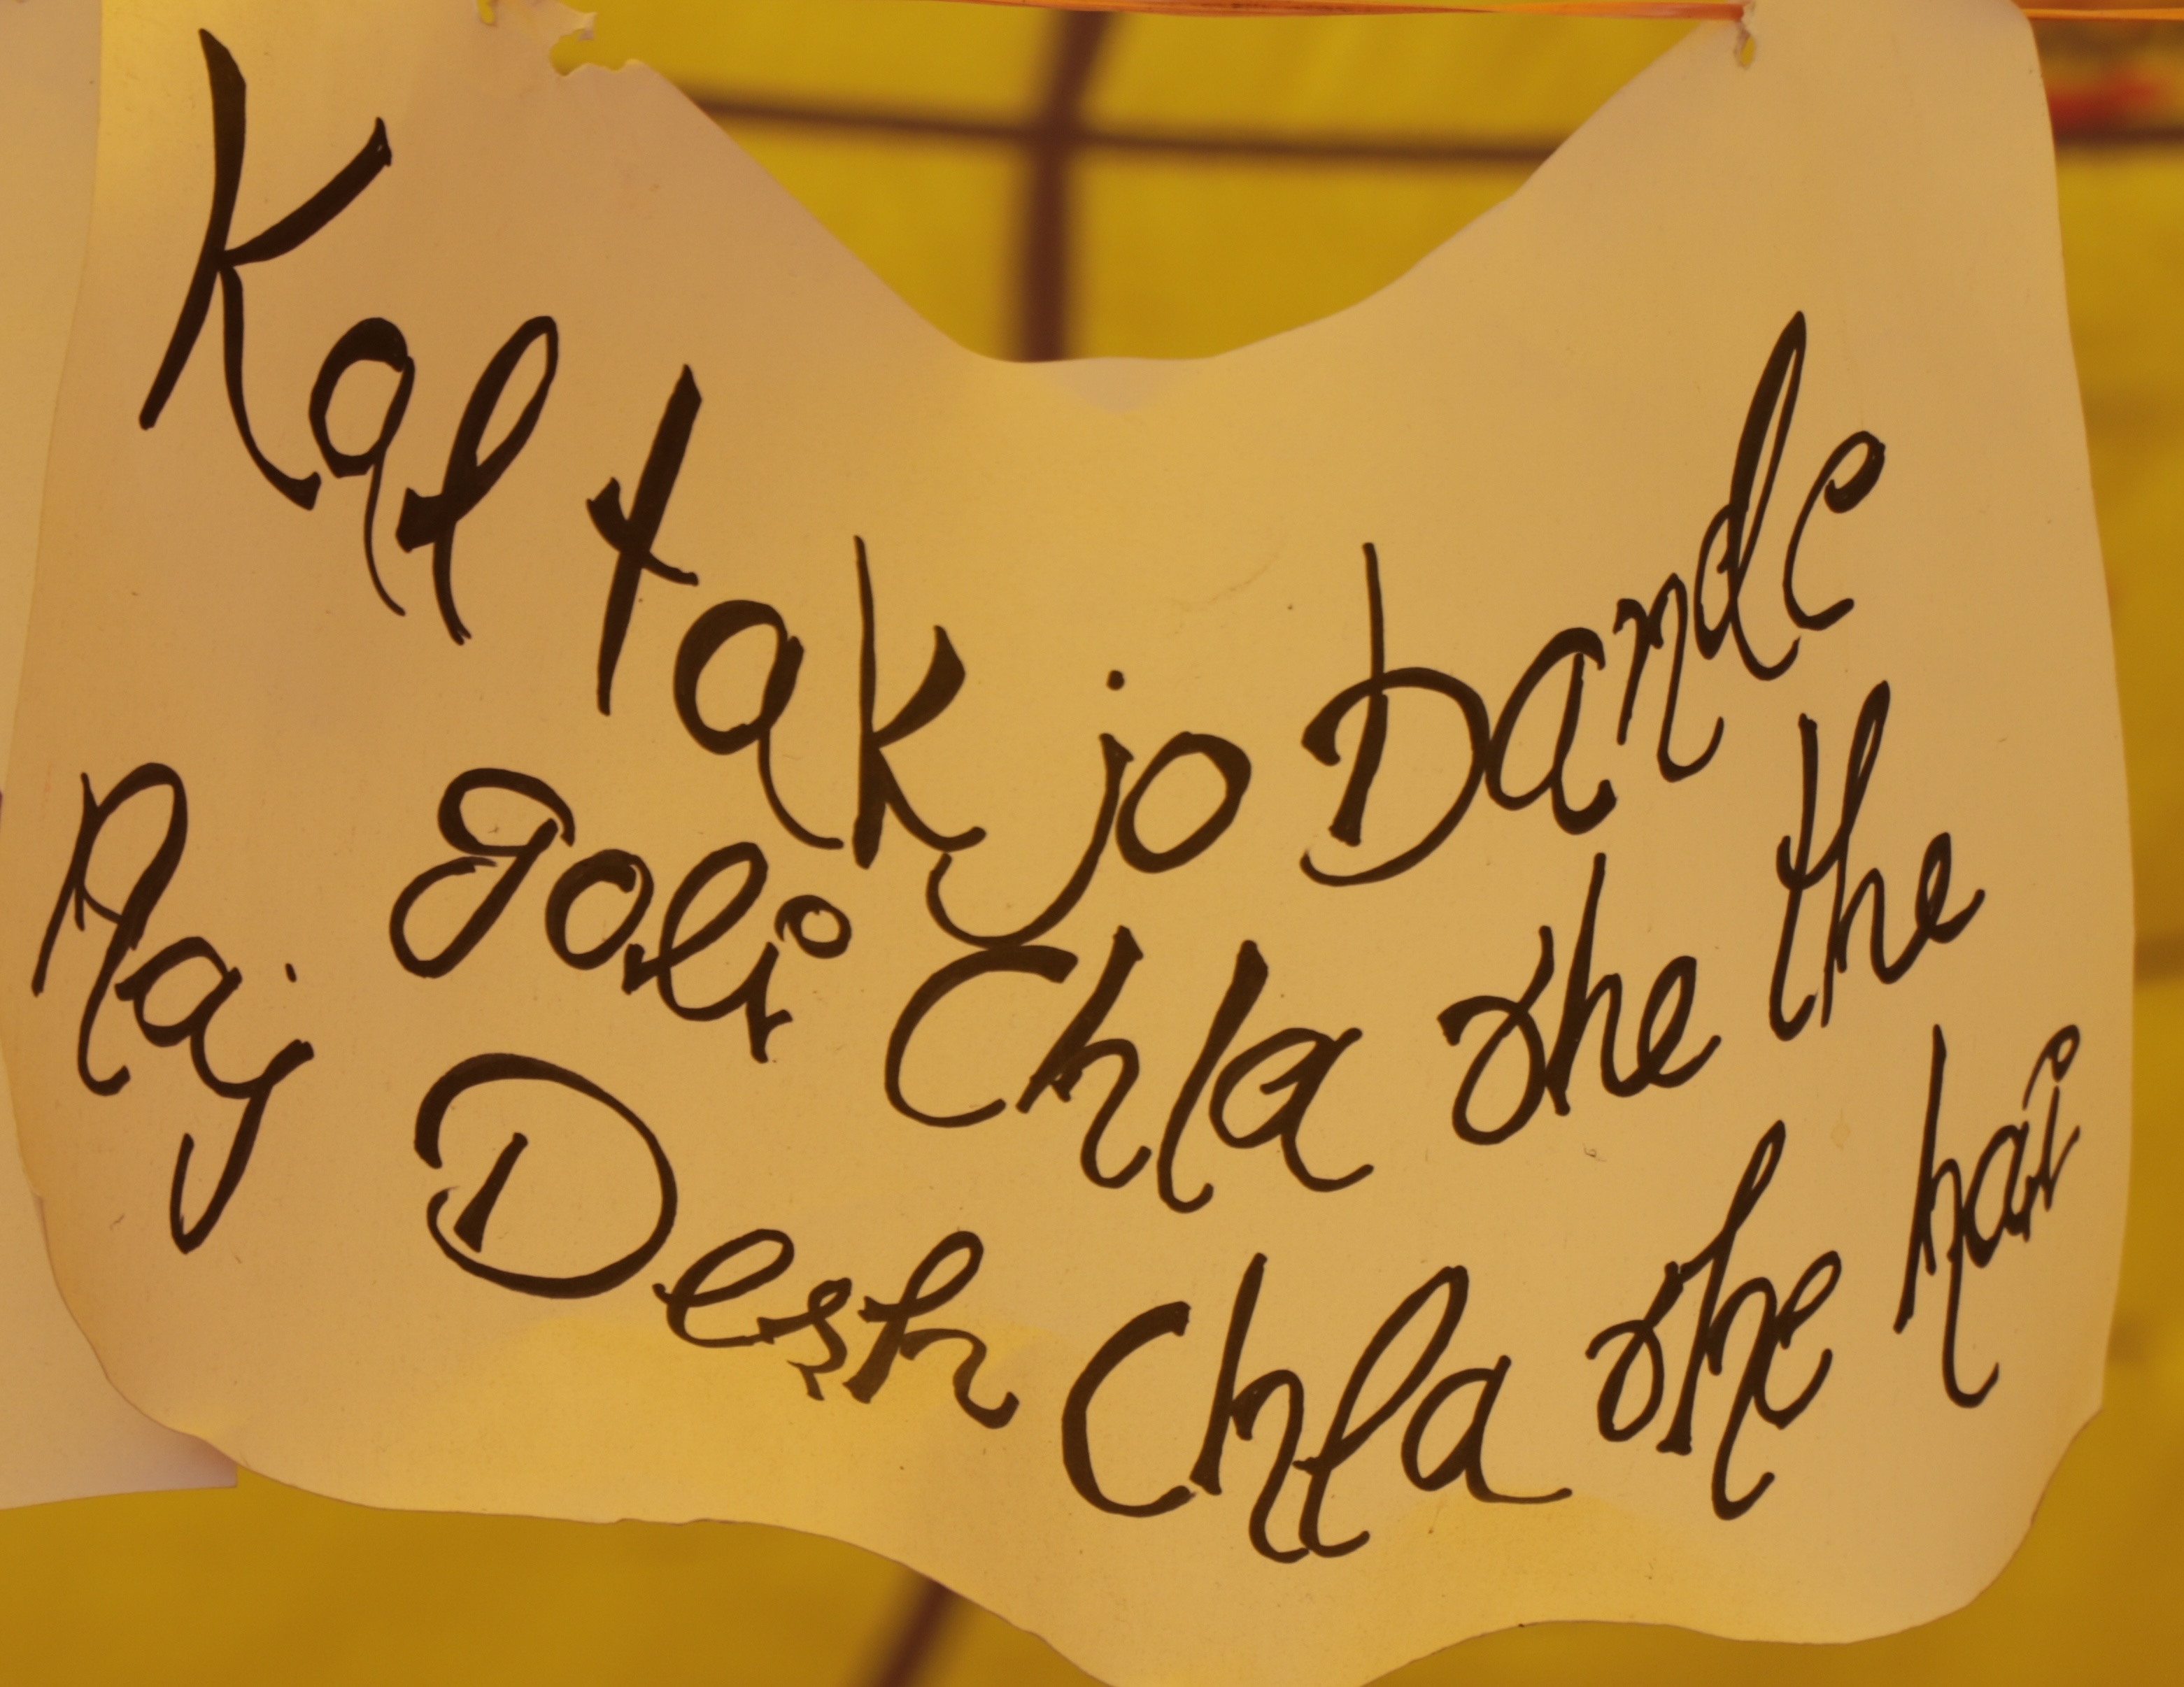 Kal tak jo Bande
goli Chla rhe the
Aaj Desh Chla rhe hai